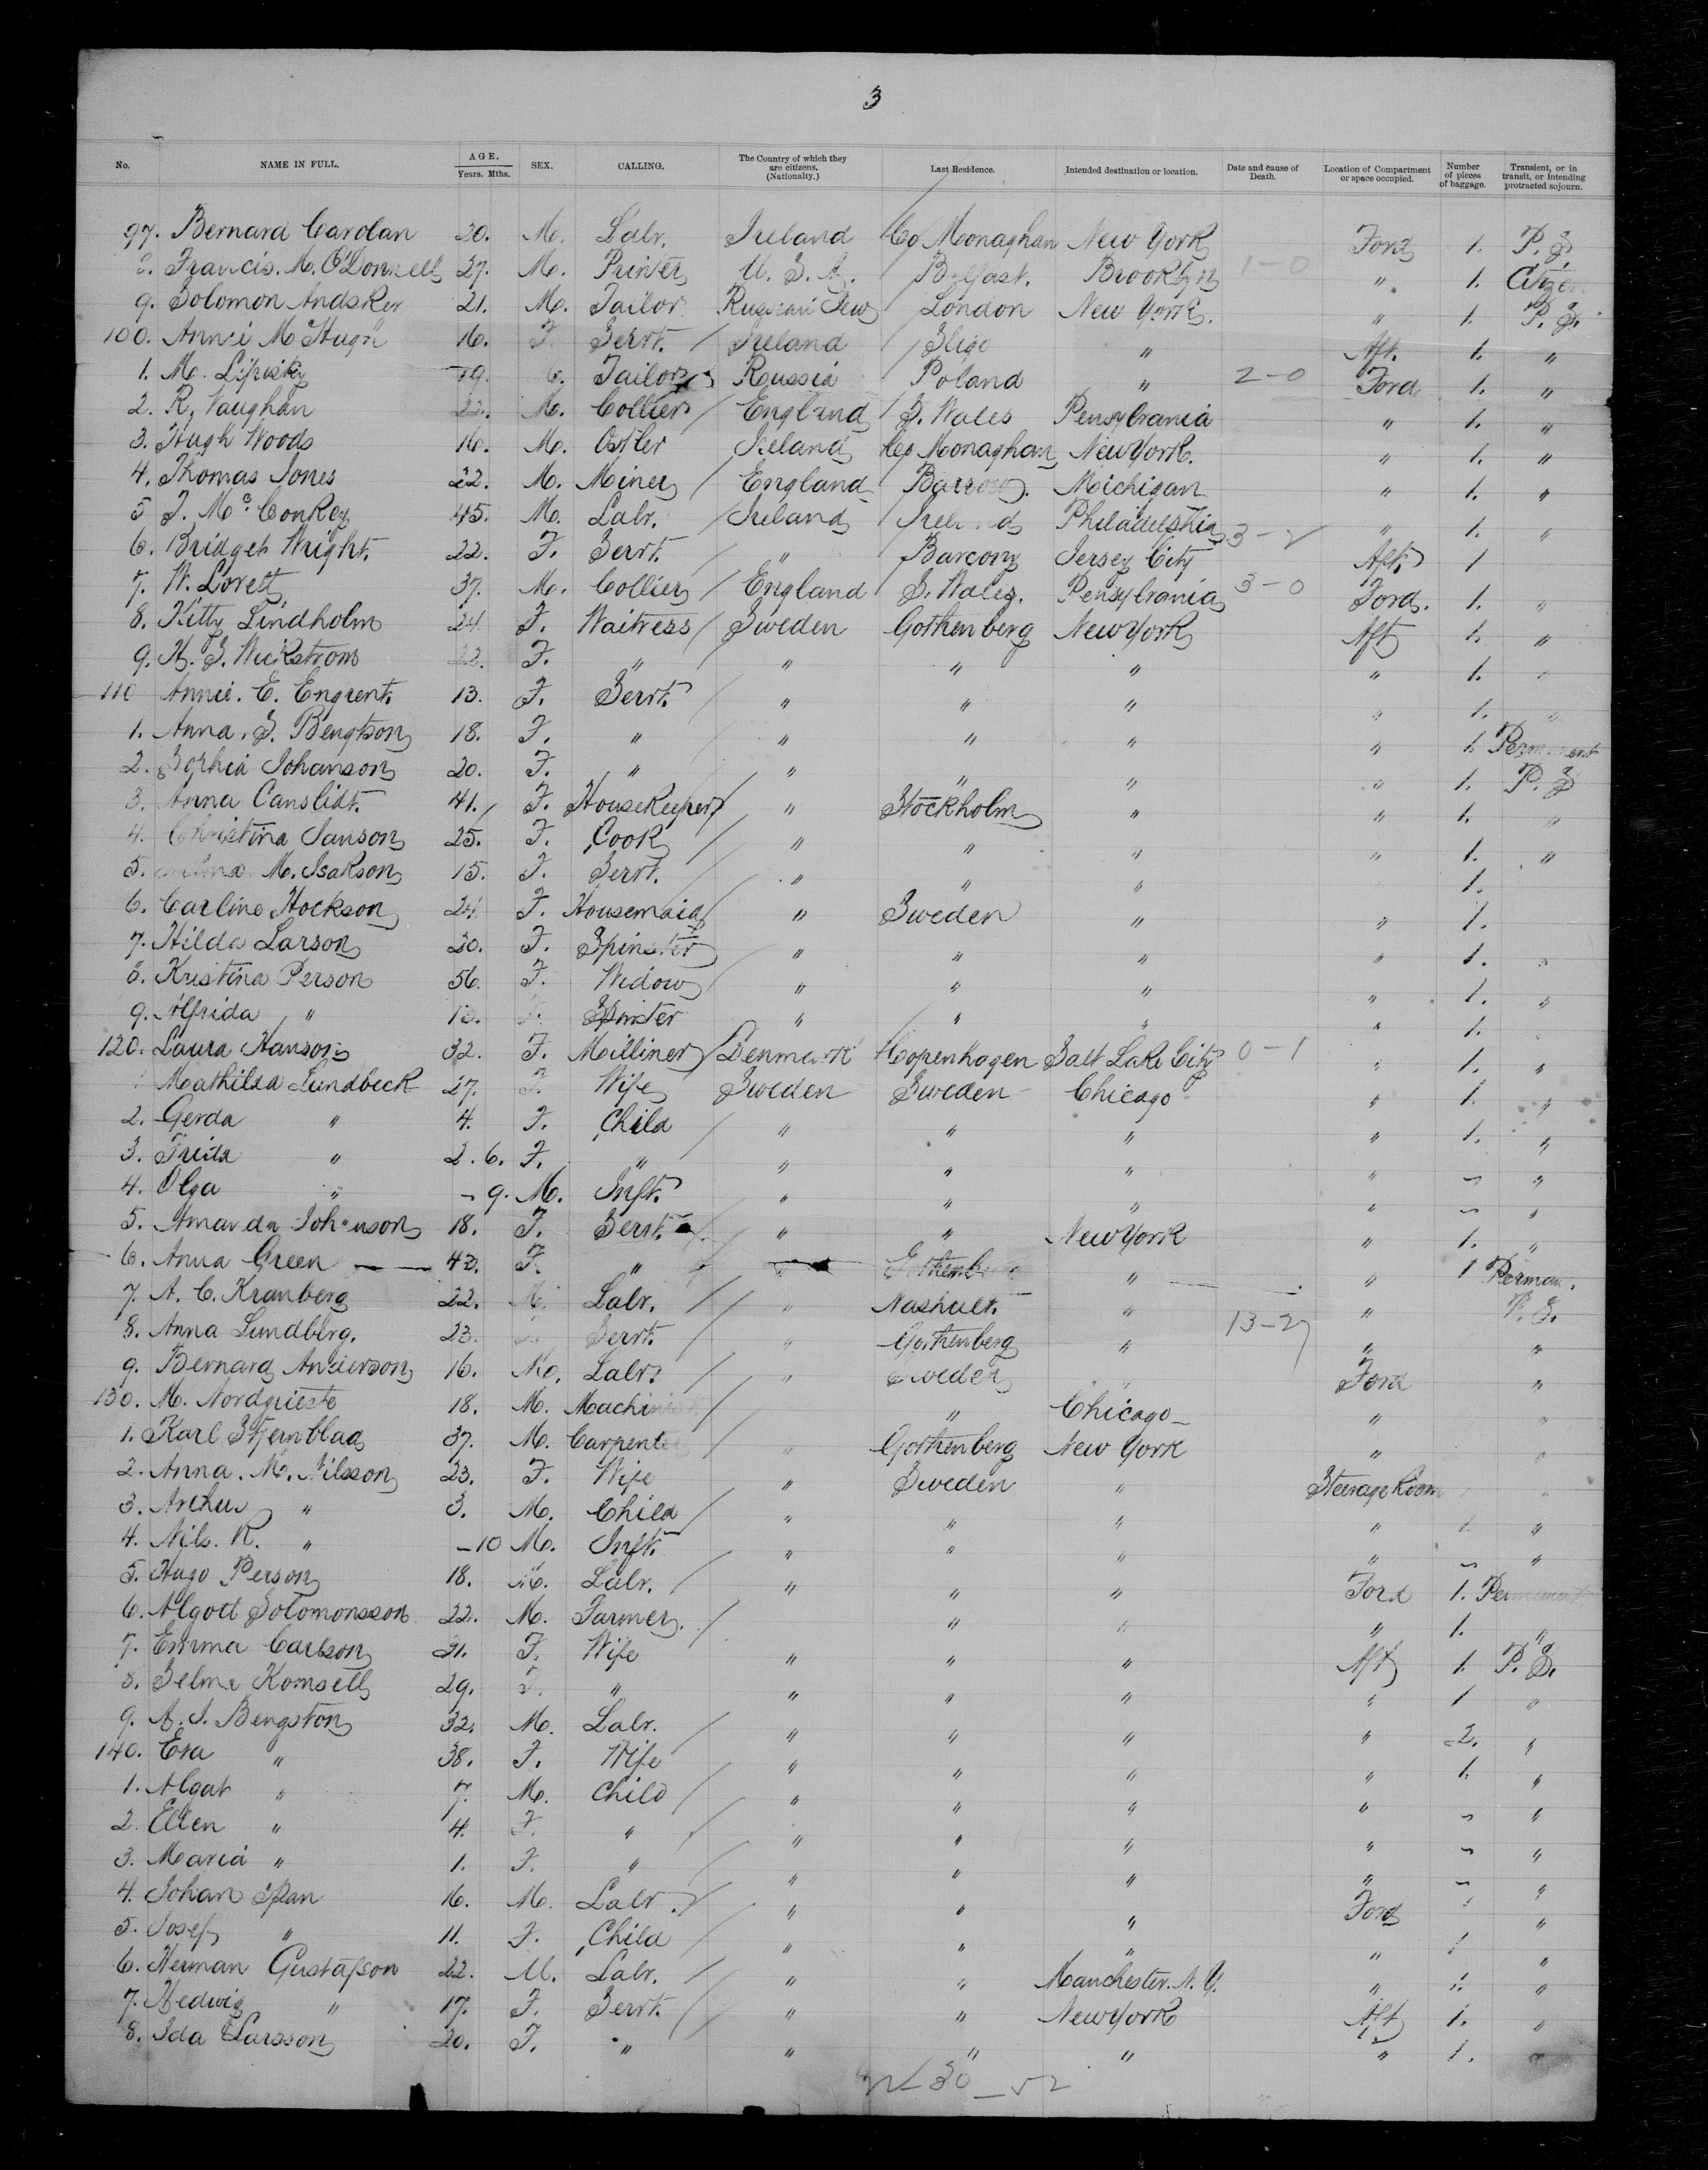 3
No. NAME IN FULL. AGE. Years. Mths. SEX. CALLING. The Country of which they are citizens. (Nationalty.) Last Residence. Intended destination or location. Date and cause of Death. Location of Compartment or space occupied. Number of pieces of baggage. Transient, or in transit, or intending protracted sojourn.
97. Bernard Carolan 20. M. Labr. Ireland Co Monaghan New York Ford 1. P. S.
8. Francis. M. O'Donnell 27. M. Printer U. S. A. Belfast. Brooklyn 1-0 " 1. Citizen
9. Solomon Andsker 21. M. Tailor Russian Jew London New York. " 1. P. S.
100. Annie McHugh 16. F. Servt. Ireland Sligo " Aft. 1. "
1. M. Lipisky 19. M. Tailor Russia Poland " 2-0 Ford 1. "
2. R. Vaughan 22. M. Collier England S. Wales Pensylvania " 1. "
3. Hugh Woods 16. M. Ostler Ireland Co Monaghan New York. " 1. "
4. Thomas Jones 22. M. Miner England Barrow. Michigan " 1. "
5 J. Mc Conkey 45. M. Labr. Ireland Ireland Philadelphia 3-2 " 1. "
6. Bridget Wright. 22. F. Servt. " Barcony Jersey City Aft. 1
7. W. Lovett 37. M. Collier England S. Wales. Pensylvania 3-0 Ford. 1. "
8. Kitty Lindholm 24 F. Waitress Sweden Gothenberg New York Aft 1. "
9. H. S. Wickstrom 22. F. " " " " " 1. "
110 Annie. E. Engrent. 13. F. Servt. " " " " 1. "
1. Anna. S. Bengtson 18. F. " " " " " 1. Permanent
2. Sophia Johanson 20. F. " " " " " 1. P. S
3. Anna Canslidt. 41. F. Housekeeper " Stockholm " " 1. "
4. Christina Janson 25. F. Cook " " " " 1. "
5. M. Isakson 15. F. Servt. " " " 1.
6. Carline Hockson 24. F. Housemaid " Sweden " " 1.
7. Hilda Larson 20. F. Spinster " " " " 1. "
8. Kristina Person 56. F. Widow " " " " 1. "
9. Alfrida " F. Spinster " " " " 1.
120. Laura Hanson 32. F. Milliner Denmark Copenhagen Salt Lake City 0-1 " 1. "
1 Mathilda Lundbeck 27. F. Wife Sweden Sweden Chicago " 1. "
2. Gerda " 4. F. Child " " " " 1. "
3. Frida " 2. 6. F. " " " " " - "
4. Olga " - 9. M. Inft. " " " " - "
5. Amanda Johanson 18. F. Servt. " " New York " 1. "
6. Anna Green 43. F. " Gothenburg " " 1 Perman.
7. A. C. Kranberg 22. M. Labr. " Nashult. " " P. S.
8. Anna Lundberg. 23. F. Servt. " Gothenberg " 13-2 " "
9. Bernard Anderson 16. M. Labr. " Sweden " Ford "
130. M. Nordquiste 18. M. Machinist " Chicago " "
1. Karl Stjernblad 37. M. Carpenter " Gothenberg New York " "
2. Anna. M. Nilsson 23. F. Wife " Sweden " Steerage Room "
3. Arthur " 3. M. Child " " " " 1. "
4. Nils. R. " -10 M. Inft. " " " " - "
5. Hugo Person 18. M. Labr. " " " Ford 1. Permanent
6. Algott Solomonsson 22. M. Farmer. " " " 1. "
7. Emma Carlson 31. F. Wife " " " Aft 1. P. S.
8. Selma Komsell 29. F. " " " " " 1 "
9. A. J. Bengston 32. M. Labr. " " " " 2. "
140. Eva " 38. F. Wife " " " " 1. "
1. Algat " 7. M. Child " " " " - "
2. Ellen " 4. F. " " " " " - "
3. Maria " 1. F. " " " " " - "
4. Johan Span 16. M. Labr. " " " Ford "
5. Josef " 11. F. Child " " " " 1 "
6. Herman Gustafson 22. M. Labr. " " Manchester. N. Y. " 1. "
7. Hedwig " 17. F. Servt. " " New York Aft 1. "
8. Ida Larsson 20. F. " " " " " 1. "